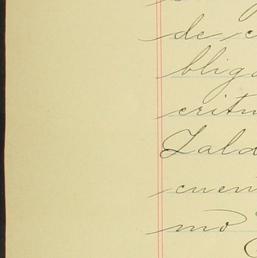 de c
bliga
critu
Zald
cuen
mo